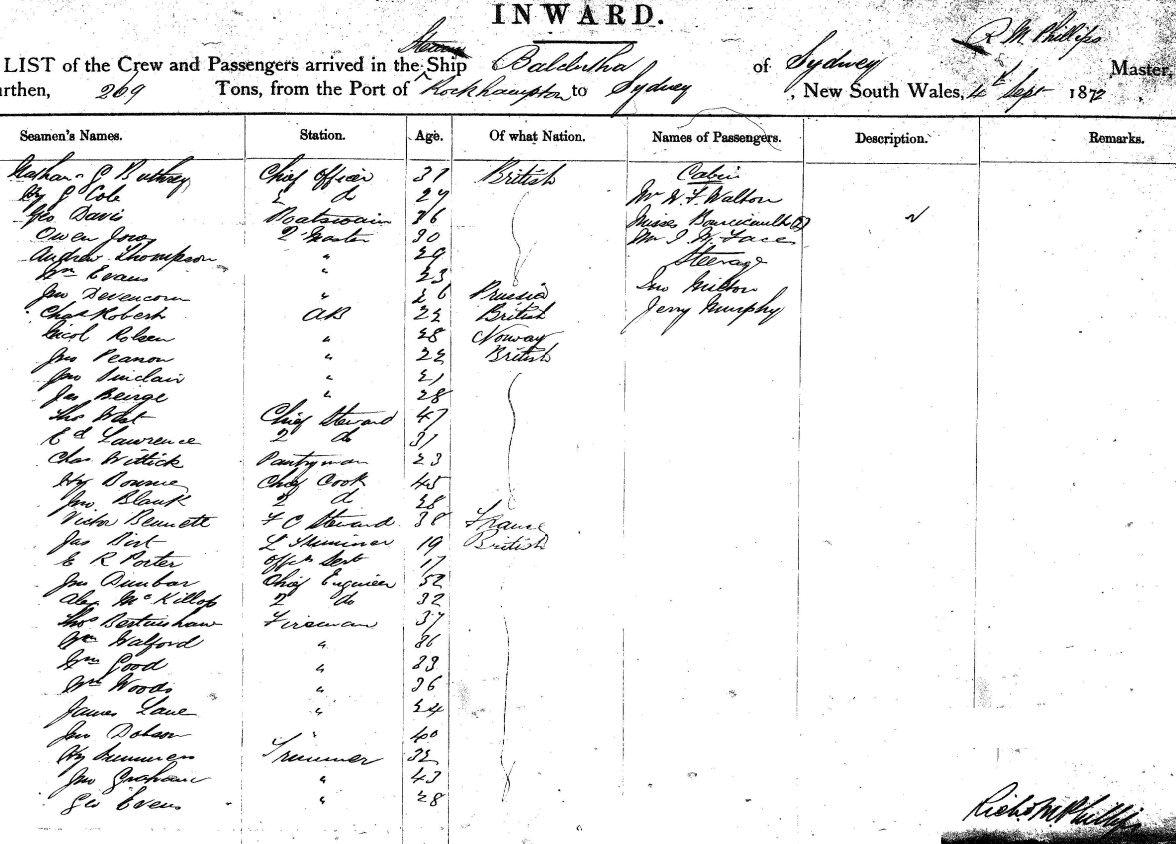 INWARD.
R M Phillips
Steam
LIST of the Crew and Passengers arrived in the Ship Balclutha of Sydney Master,
urthen, 269 Tons, from the Port of Rockhampton to Sydney, New South Wales, Sept 1872
Seamen's Names. Station. Age. Of what Nation. Names of Passengers. Description. Remarks.
Chief Officer 37 British Cabin
Hy G Cole 2 do 29 Mr W. F. Walton
Geo Davis Boatswain 36 Misses Boucicault (2)
Owen Jones 2 Master 30 Mr
Andrew Thompson " 29 Steerage
Wm Evans " 23 Jno Milton
Jno " 26 Prussia Jerry Murphy
Chas Robert AB 22 British
Rolsen " 28 Norway
Jno Pearson " 22 British
Jno Sinclair " 21
" 28
Thos West Chief Steward 47
Ed Lawrence 2 do 31
Chas Wittick Pantryman 23
Hy Chief Cook 45
Jno Blank 2 d 28
Victor Bennett F C Steward 38 France
Jas 19 British
E R Porter 17
Jno Dunbar Chief Engineer 52
Alex McKillop 2 do 32
Thos Bertenshaw Fireman 37
Wm Walford " 36
Wm Good " 33
Wm Woods " 36
James Lane " 24
Jno Dobson " 40
Hy Summers Trimmer 32
Jno Graham " 43
Geo Evens " 28
Richd M Phillips